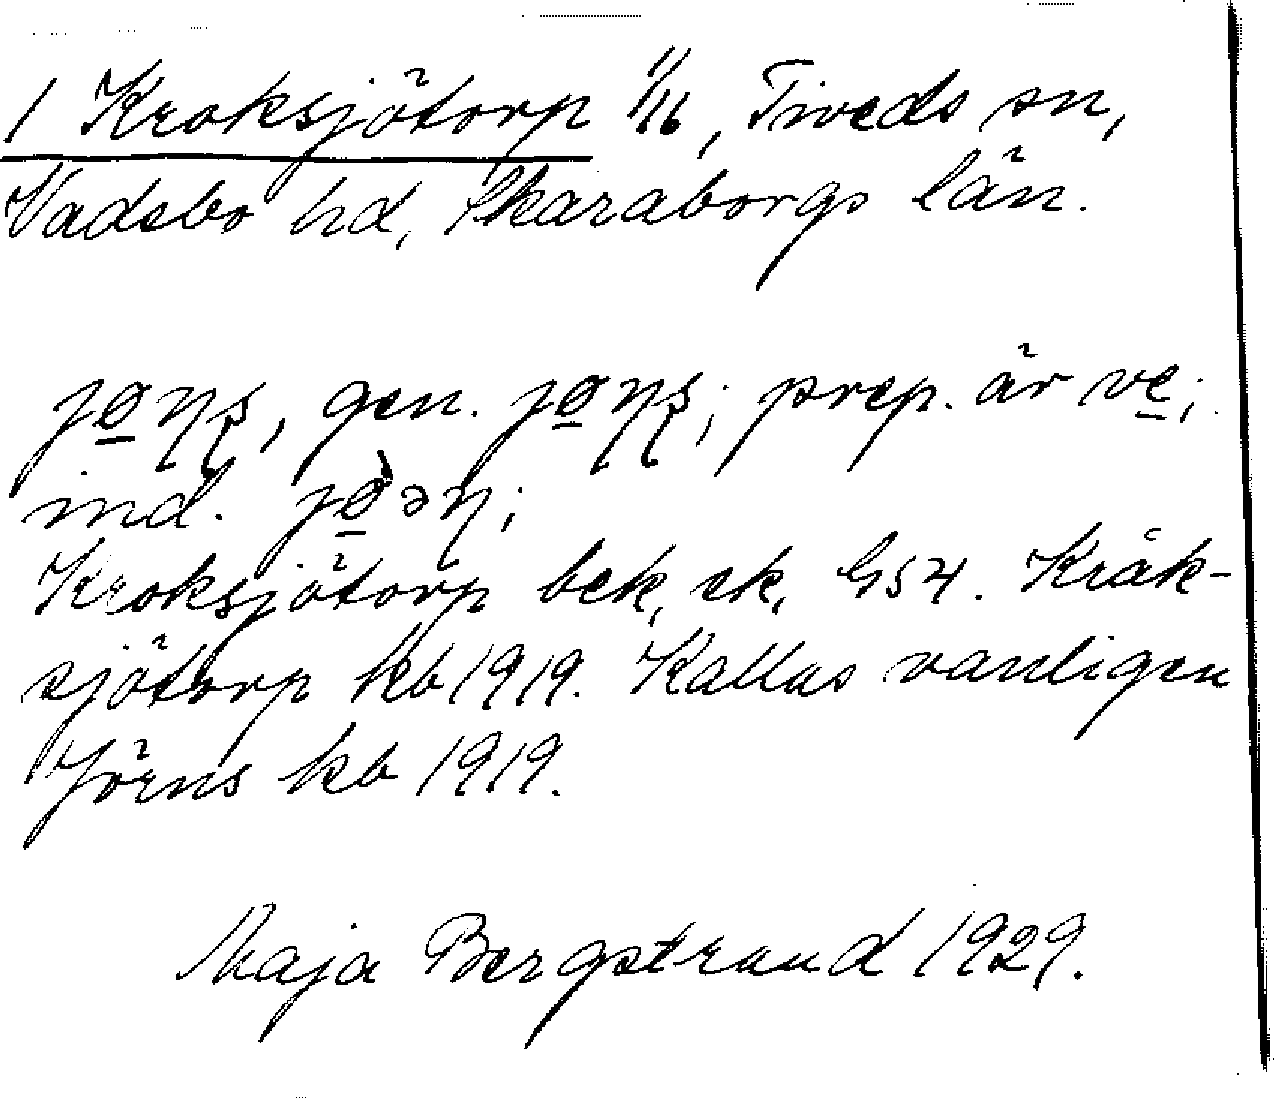 1 Kroksjötorp 1/16, Tiveds sn,
Vadsbo hd, Skaraborgs län.
gen. prep. är ve;
ind.
Kroksjötorp bek, ek, GS4. Kråk-
sjötorp kb 1919. Kallas vanligen
Jörns kb 1919.
Maja Bergstrand 1929.